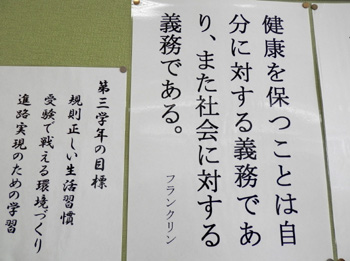 健康を保つことは自
分に対する義務であ
り、また社会に対する
義務である。
フランクリン
第三学年の目標
規則正しい生活習慣
受験で戦える環境づくり
進路実現のための学習